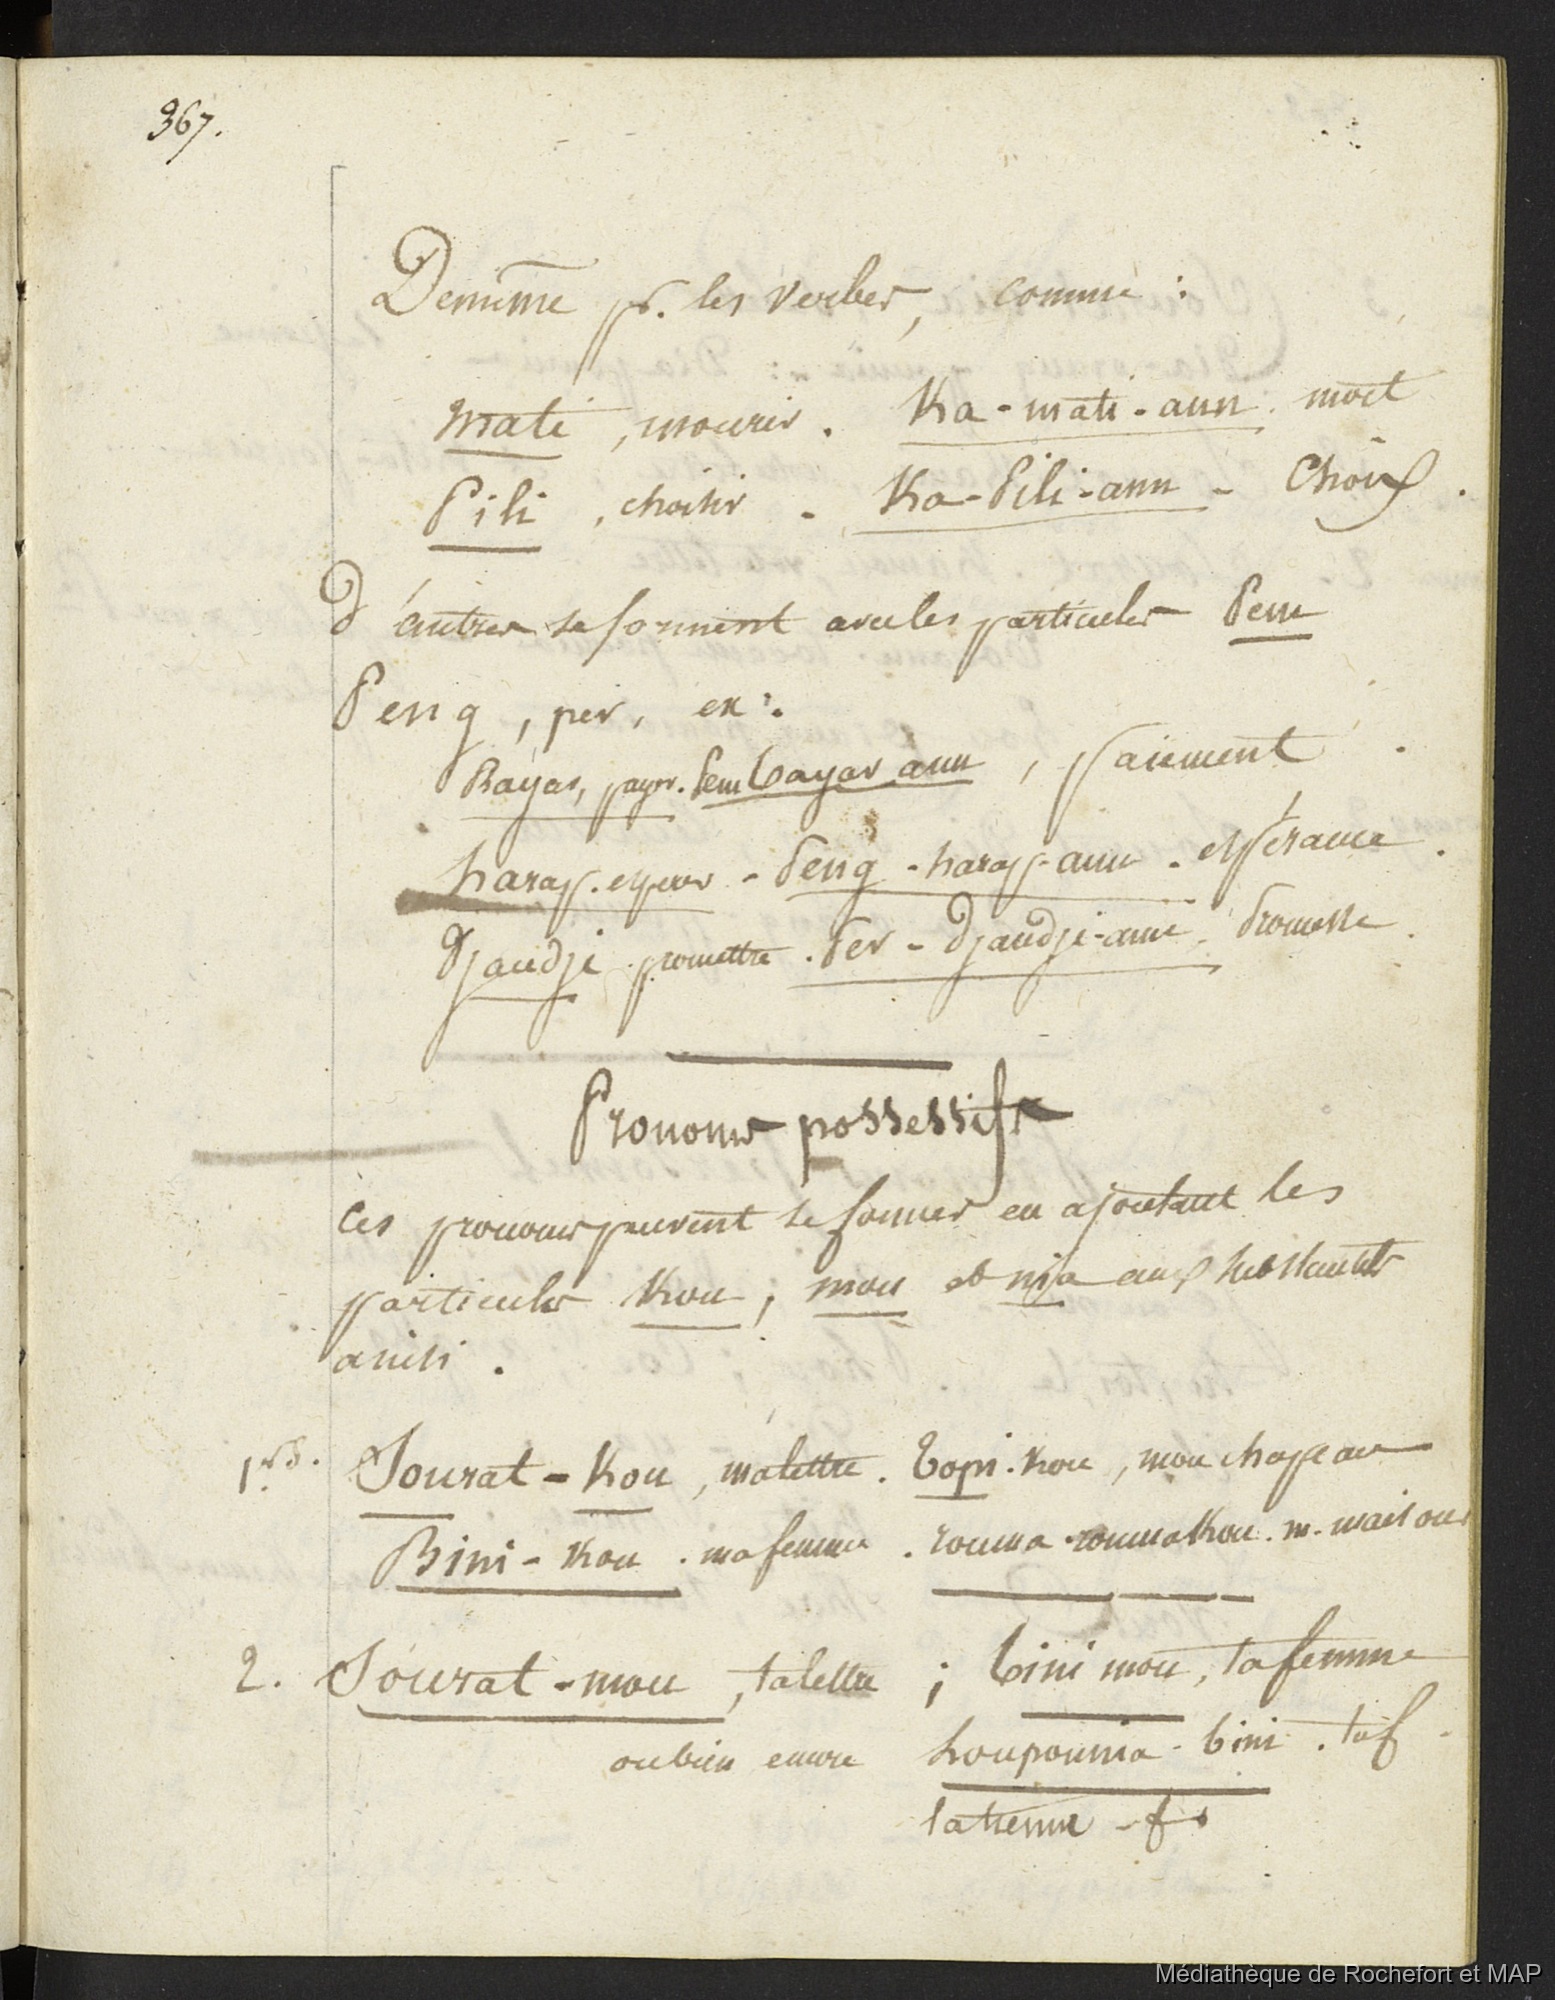 367.
De même pr. les verbes, comme :
Mati, mourir. Ka-mati-ann. mort
Pili, choisir - Ka-Pili-ann - Choix.
D'autres se forment avec les particules Pem
Peng, per, ex :
Bayar, payer. Pem bayar ann, paiement
harap. espérer - Peng-harap-ann - espérance.
Djandji promettre. Per-Djandji-ann. Promesse.
Pronoms possessifs
Ces pronoms peuvent se former en ajoutant les
particules Kou, mou et nia aux substantifs
ainsi.
1re S. Sourat-Kou, ma lettre. Topi-Kou, mon chapeau
Bini-Kou. ma femme. rouma. roumakou. m. maison
2. Sourat-mou, ta lettre ; bini mou, ta femme
ou bien encore houpounia-bini. ta f.
la tienne - f
Médiathèque de Rochefort et MAP